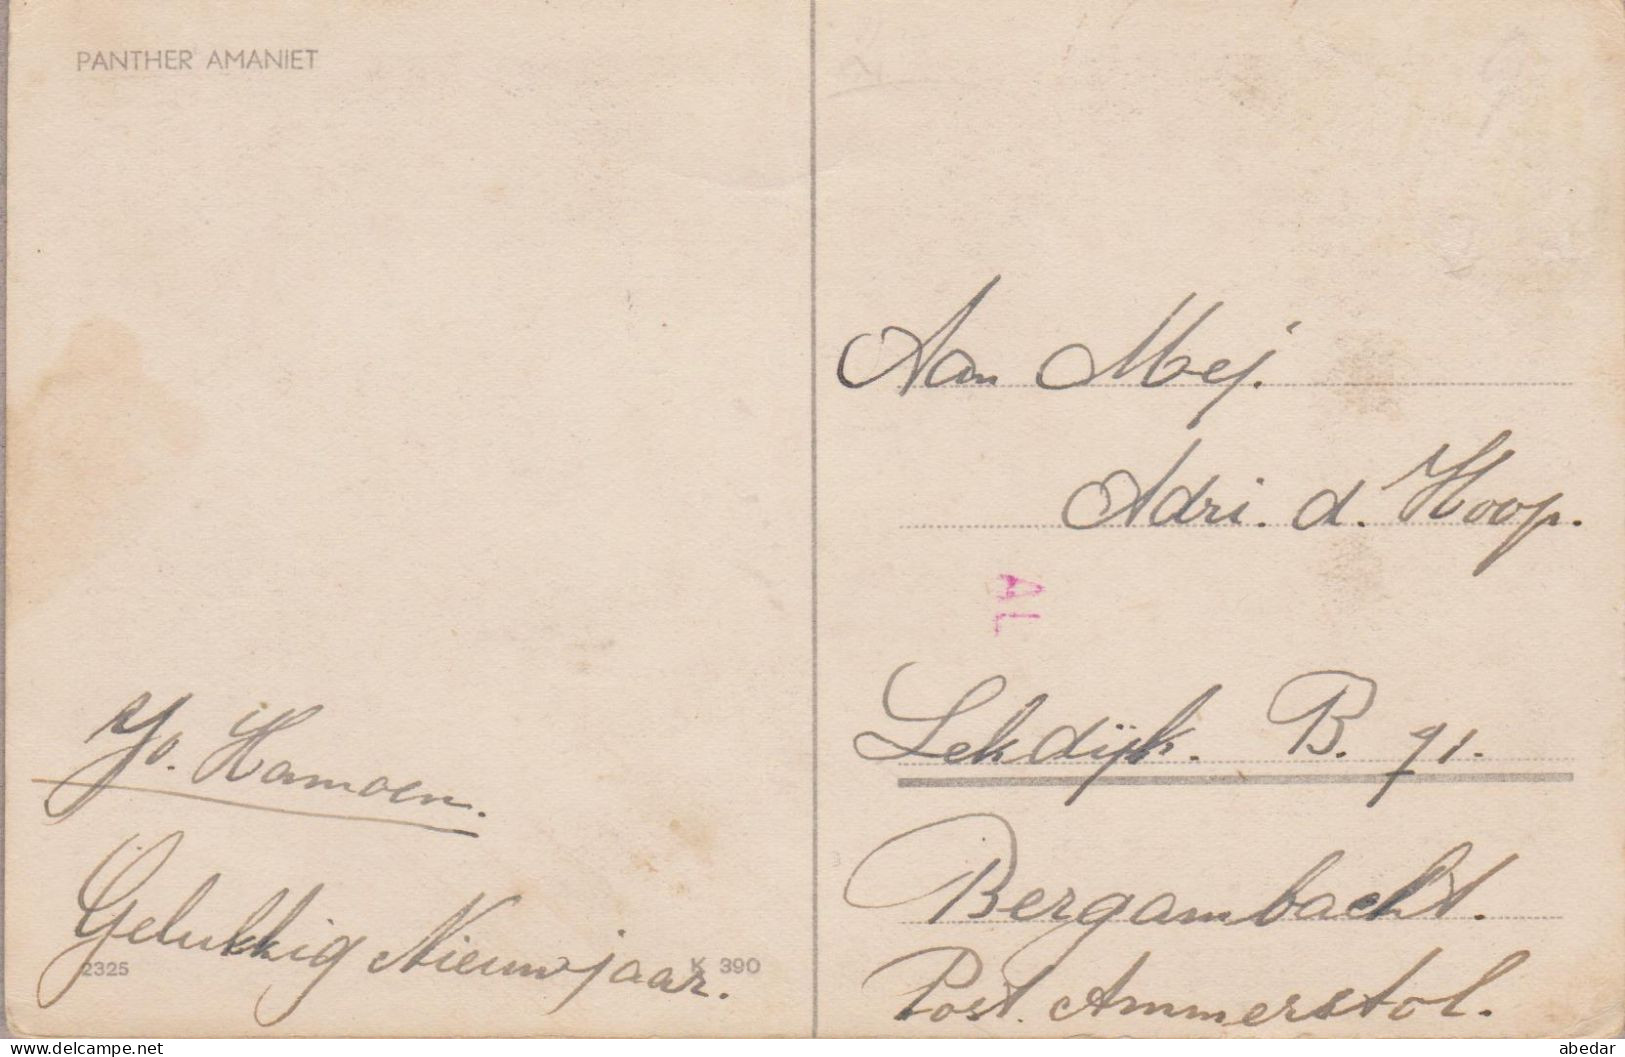 PANTHER AMANIET
Jo. Hamoen.
Gelukkig Nieuwjaar.
2325
K 390
Aan Mej.
Adri. d. Hoop.
AL
Lekdijk. B. 71.
Bergambacht.
Post. Ammerstol.
www.delcampe.net
abedar